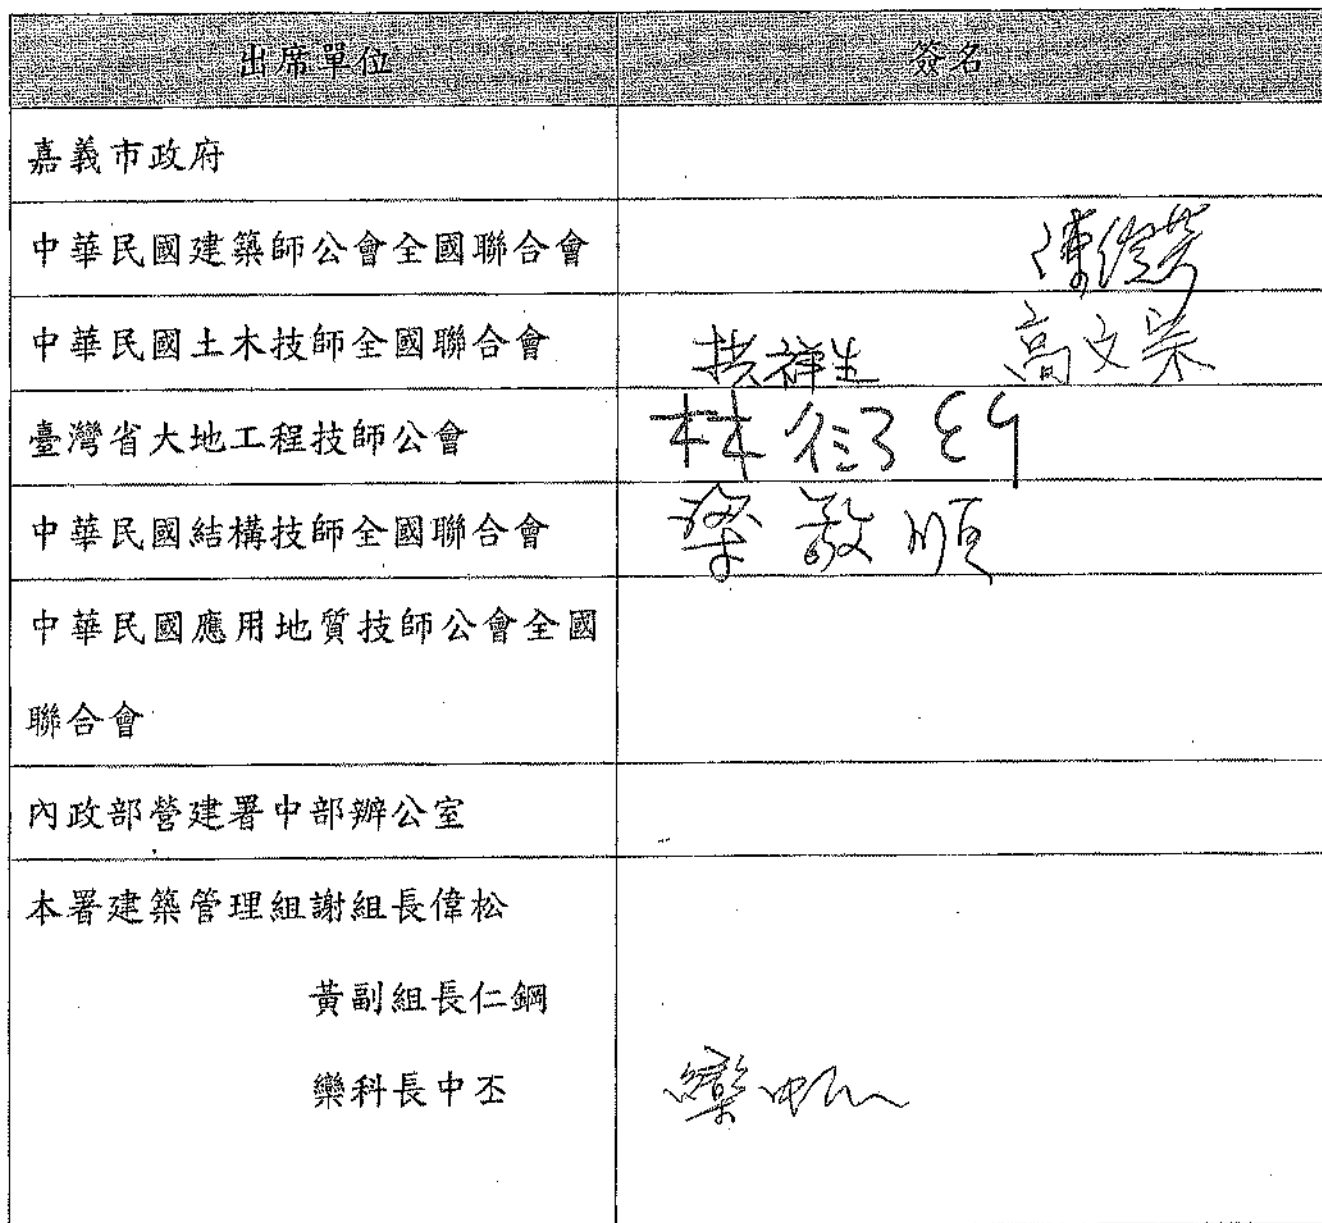 出席單位 簽名
嘉義市政府
中華民國建築師公會全國聯合會
中華民國土木技師全國聯合會 洪祥生 高文
臺灣省大地工程技師公會 林衍
中華民國結構技師全國聯合會 梁敬順
中華民國應用地質技師公會全國
聯合會
內政部營建署中部辦公室
本署建築管理組謝組長偉松
黃副組長仁鋼
欒科長中丕 欒中丕